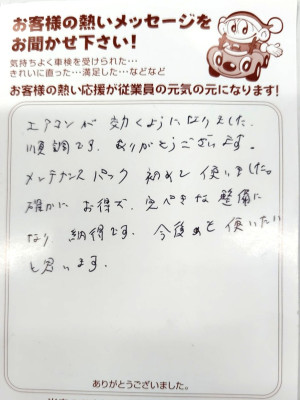 お客様の熱いメッセージを
お聞かせ下さい！
気持ちよく車検を受けられた…
きれいに直った…満足した…などなど
お客様の熱い応援が従業員の元気の元になります！
エアコンが 効くようになりました。
順調です。ありがとうございます。
メンテナンスパック 初めて 使いました。
確かに お得で、完ぺきな 整備に
なり 納得です。今後も 使いたい
と思います。
ありがとうございました。